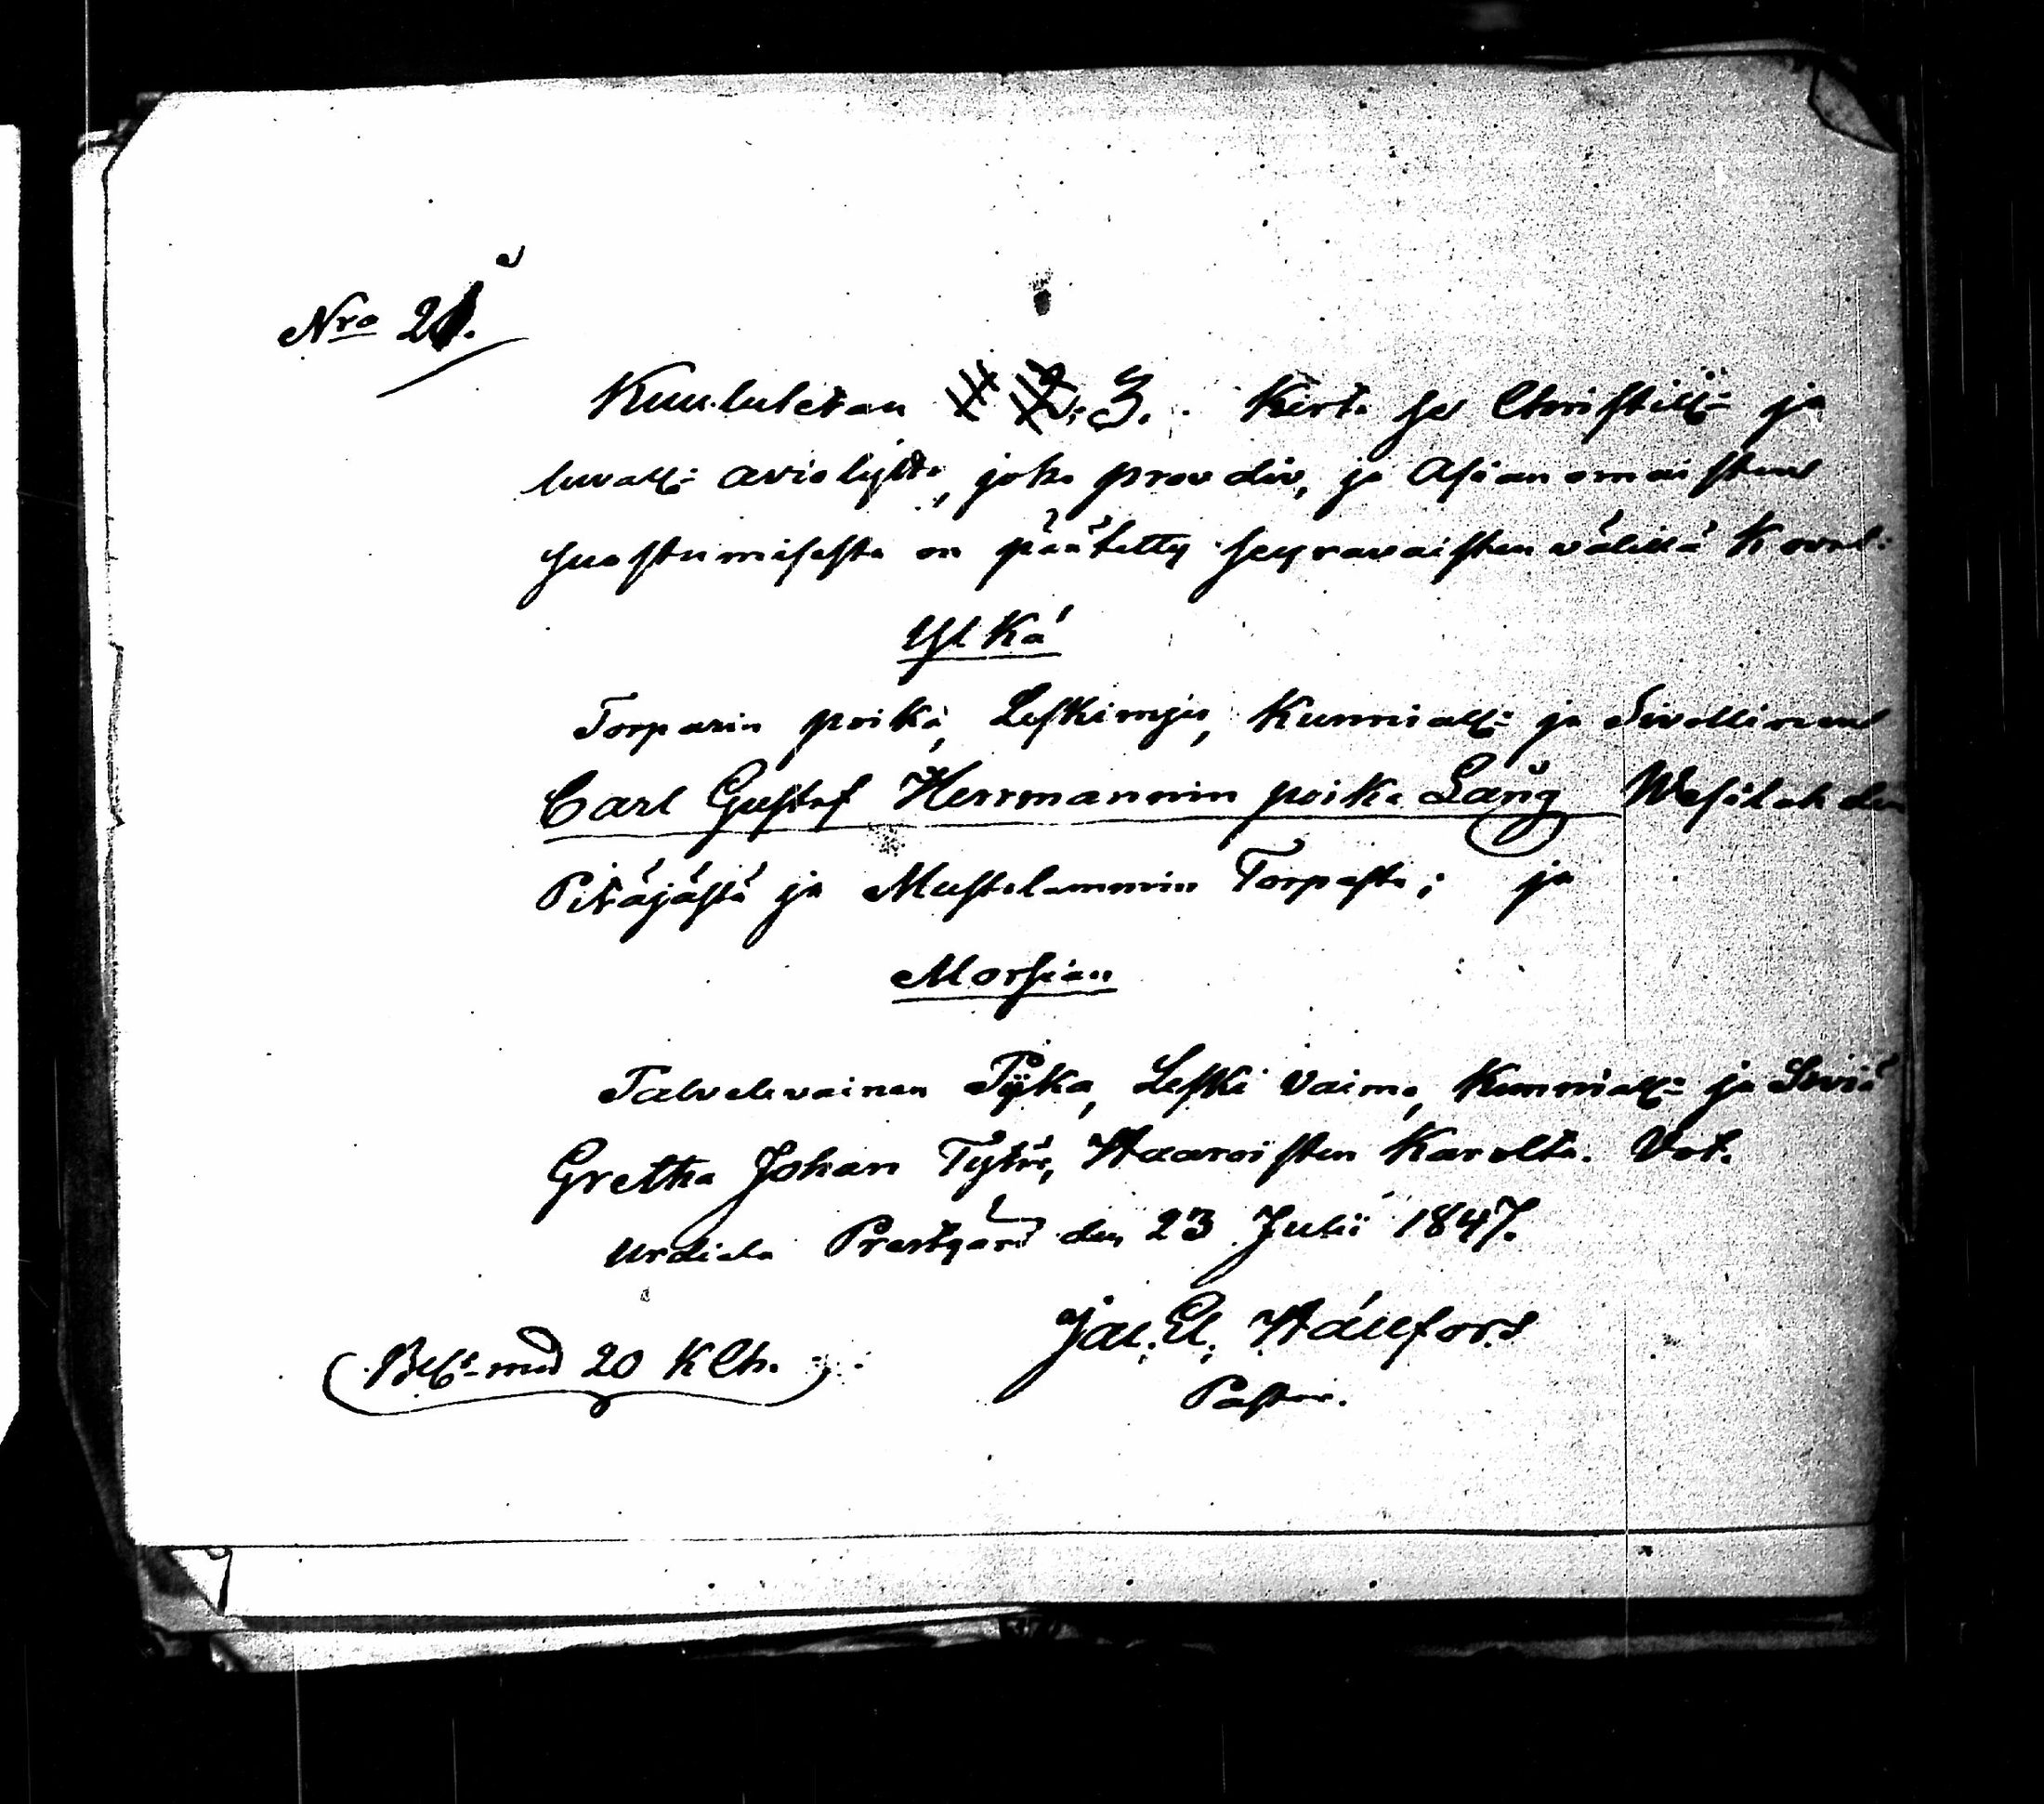 Nro 21.
Kuulutetan 1. 2. 3. Kert. se Christill: ja
luvall: avioliitto, joka provdiv, ja Asianomaisten
suostumisesta on päätetty seuravaisten välillä
Ylkä
Torparin poika, Leskimjes, Kunniall: ja Sivollinen
Carl Gustaf Herrmannin poika Lång Wesilahden
Pitäjästä ja Mustalammin Torpasta; ja
Morsian
Palvelevainen Pijka, Leski vaimo, Kunniall: ja Siviä
Gretha Johan Tytär, Haaroisten Karolta.
Urdiala Prestgård den 23 Julii 1847.
Jac. El. Hällfors
Pastor.
med 20 K